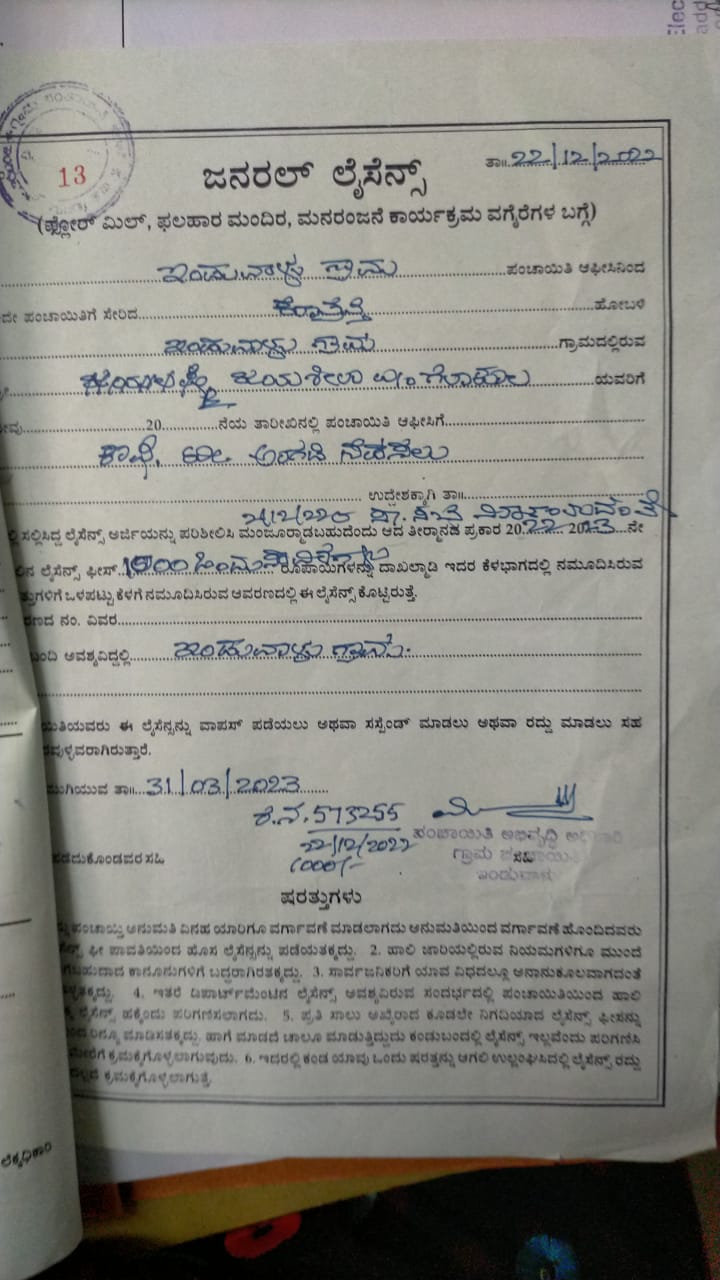 13
ಜನರಲ್ ಲೈಸೆನ್ಸ್
ತಾ॥ 22/12/2022
(ಫ್ಲೋರ್ ಮಿಲ್, ಫಲಹಾರ ಮಂದಿರ, ಮನರಂಜನೆ ಕಾರ್ಯಕ್ರಮ ವಗೈರೆಗಳ ಬಗ್ಗೆ)
ಇಂಡುವಾಳು ಗ್ರಾಮ ಪಂಚಾಯಿತಿ ಆಫೀಸಿನಿಂದ
ದೇ ಪಂಚಾಯಿತಿಗೆ ಸೇರಿದ ಹೋಬಳಿ
ಇಂಡುವಾಳು ಗ್ರಾಮ ಗ್ರಾಮದಲ್ಲಿರುವ
ಜಯಶೀಲ ಯವರಿಗೆ
20 ನೆಯ ತಾರೀಖಿನಲ್ಲಿ ಪಂಚಾಯಿತಿ ಆಫೀಸಿಗೆ
ಕಾಫಿ, ಟೀ ಅಂಗಡಿ ನೆಡೆಸಲು
ಉದ್ದೇಶಕ್ಕಾಗಿ ತಾ॥
ಸಲ್ಲಿಸಿದ್ದ ಲೈಸೆನ್ಸ್ ಅರ್ಜಿಯನ್ನು ಪರಿಶೀಲಿಸಿ ಮಂಜೂರ್ಮಾಡಬಹುದೆಂದು ಆದ ತೀರ್ಮಾನದ ಪ್ರಕಾರ 2022 2023 ನೇ
ಲೈಸೆನ್ಸ್ ಫೀಸ್ ರೂಪಾಯಿಗಳನ್ನು ದಾಖಲ್ಮಾಡಿ ಇದರ ಕೆಳಭಾಗದಲ್ಲಿ ನಮೂದಿಸಿರುವ
ತ್ತುಗಳಿಗೆ ಒಳಪಟ್ಟು ಕೆಳಗೆ ನಮೂದಿಸಿರುವ ಆವರಣದಲ್ಲಿ ಈ ಲೈಸೆನ್ಸ್ ಕೊಟ್ಟಿರುತ್ತೆ.
ರಣದ ನಂ. ವಿವರ
ಬಂದಿ ಅವಶ್ಯವಿದ್ದಲ್ಲಿ ಇಂಡುವಾಳು ಗ್ರಾಮ.
ಯಿತಿಯವರು ಈ ಲೈಸೆನ್ಸನ್ನು ವಾಪಸ್ ಪಡೆಯಲು ಅಥವಾ ಸಸ್ಪೆಂಡ್ ಮಾಡಲು ಅಥವಾ ರದ್ದು ಮಾಡಲು ಸಹ
ರವುಳ್ಳವರಾಗಿರುತ್ತಾರೆ.
ಮುಗಿಯುವ ತಾ॥ 31/03/2023
ಕ.ನ. 573255
22/12/2022
1000/-
ಪಂಚಾಯಿತಿ ಅಭಿವೃದ್ಧಿ ಅಧಿಕಾರಿ
ಗ್ರಾಮ ಪಂಚಾಯಿತಿ
ಸಹಿ
ಇಂಡುವಾಳು
ಪಡೆದುಕೊಂಡವರ ಸಹಿ
ಷರತ್ತುಗಳು
ಪಂಚಾಯ್ತಿ ಅನುಮತಿ ವಿನಹ ಯಾರಿಗೂ ವರ್ಗಾವಣೆ ಮಾಡಲಾಗದು ಅನುಮತಿಯಿಂದ ವರ್ಗಾವಣೆ ಹೊಂದಿದವರು
ಫೀ ಪಾವತಿಯಿಂದ ಹೊಸ ಲೈಸೆನ್ಸನ್ನು ಪಡೆಯತಕ್ಕದ್ದು. 2. ಹಾಲಿ ಜಾರಿಯಲ್ಲಿರುವ ನಿಯಮಗಳಿಗೂ ಮುಂದೆ
ಬಹುದಾದ ಕಾನೂನುಗಳಿಗೆ ಬದ್ಧರಾಗಿರತಕ್ಕದ್ದು. 3. ಸಾರ್ವಜನಿಕರಿಗೆ ಯಾವ ವಿಧದಲ್ಲೂ ಅನಾನುಕೂಲವಾಗದಂತೆ
ಳ್ಳತಕ್ಕದ್ದು. 4. ಇತರೆ ಡಿಪಾರ್ಟ್‌ಮೆಂಟಿನ ಲೈಸೆನ್ಸ್ ಅವಶ್ಯವಿರುವ ಸಂದರ್ಭದಲ್ಲಿ ಪಂಚಾಯಿತಿಯಿಂದ ಹಾಲಿ
ಲೈಸೆನ್ಸ್ ಹಕ್ಕೆಂದು ಪರಿಗಣಿಸಲಾಗದು. 5. ಪ್ರತಿ ಸಾಲು ಅಖೈರಾದ ಕೂಡಲೇ ನಿಗದಿಯಾದ ಲೈಸೆನ್ಸ್ ಫೀಸನ್ನು
ರಿನ್ಯೂ ಮಾಡಿಸತಕ್ಕದ್ದು. ಹಾಗೆ ಮಾಡದೆ ಚಾಲೂ ಮಾಡುತ್ತಿದ್ದುದು ಕಂಡುಬಂದಲ್ಲಿ ಲೈಸೆನ್ಸ್ ಇಲ್ಲವೆಂದು ಪರಿಗಣಿಸಿ
ಕ್ರಮಕೈಗೊಳ್ಳಲಾಗುವುದು. 6. ಇದರಲ್ಲಿ ಕಂಡ ಯಾವು ಒಂದು ಷರತ್ತನ್ನು ಆಗಲಿ ಉಲ್ಲಂಘಿಸಿದಲ್ಲಿ ಲೈಸೆನ್ಸ್ ರದ್ದು
ಕ್ರಮಕೈಗೊಳ್ಳಲಾಗುತ್ತೆ.